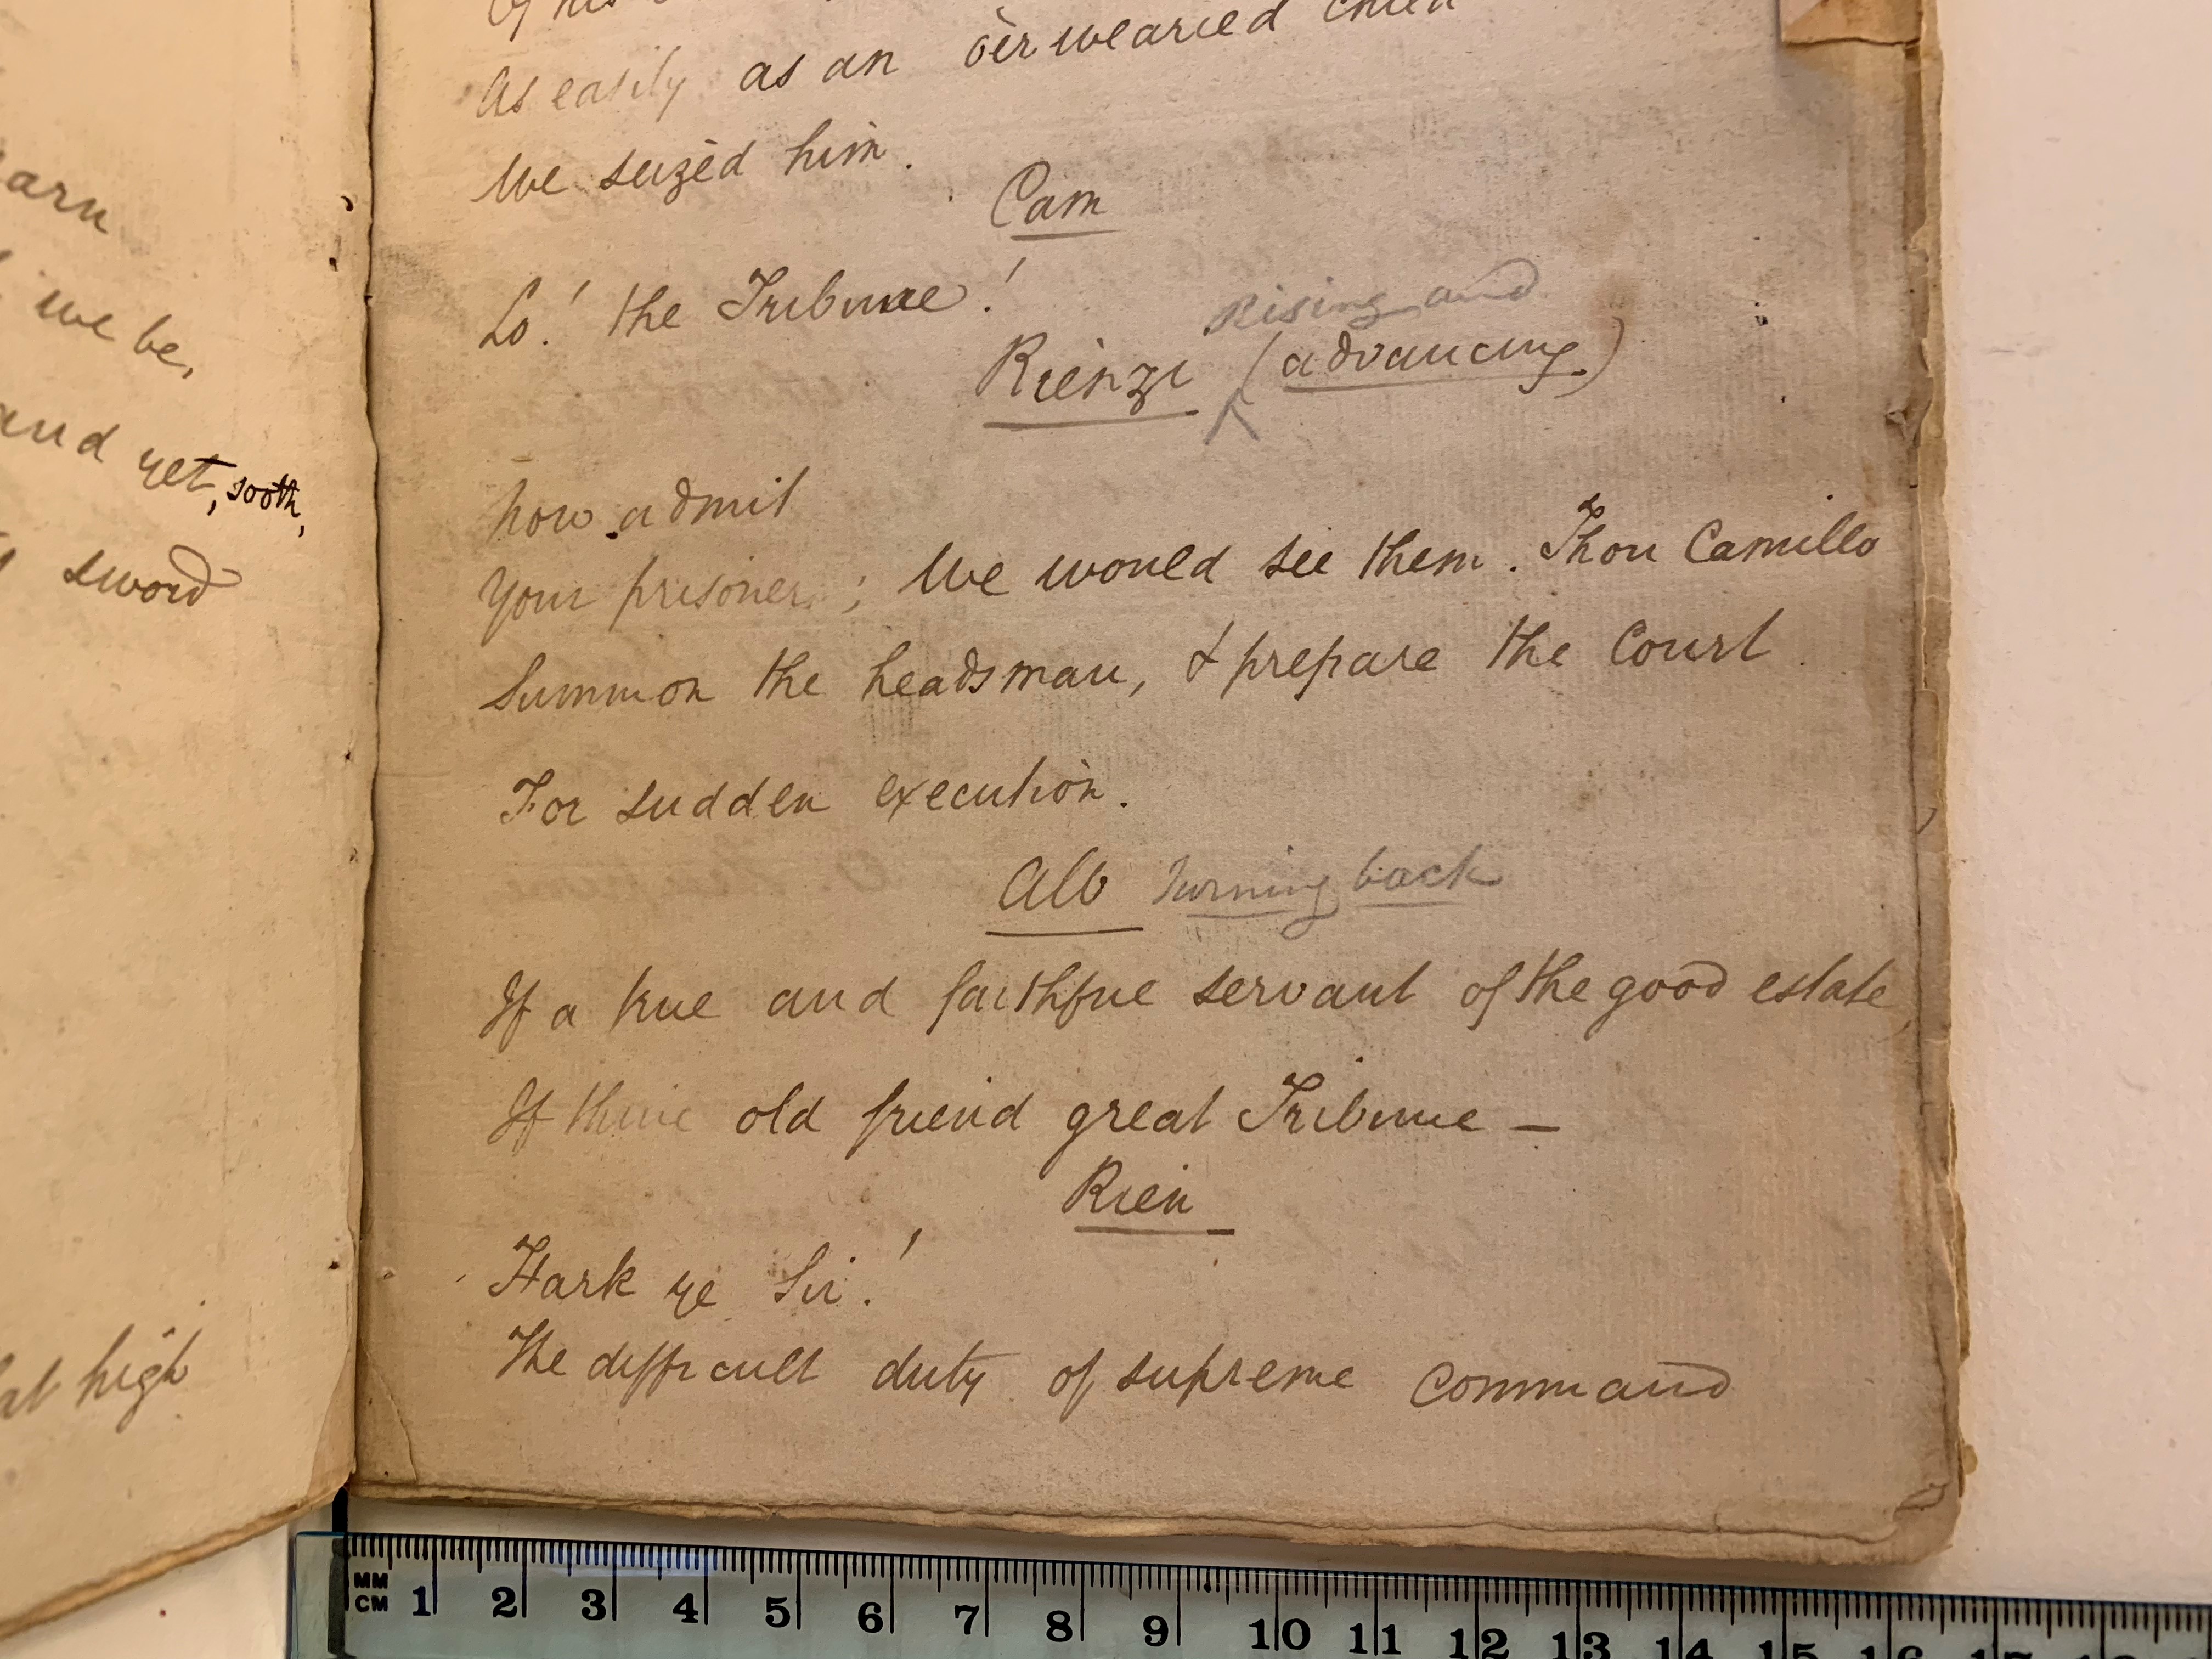 arn
we be,
and yet, sooth,
sword
high
As easily as an o'erwearied child
We seized him.
Cam
Lo! the Tribune!
Rising and
Rienzi (advancing)
Now admit
Your prisoner; We would see them. Thou Camillo
Summon the headsman, & prepare the Court
For sudden execution.
Alb turning back
If a true and faithful servant of the good estate,
If thine old friend great Tribune —
Rien
Hark ye Sir!
The difficult duty of supreme command
MM
CM 1 2 3 4 5 6 7 8 9 10 11 12 13 14 15 16 17